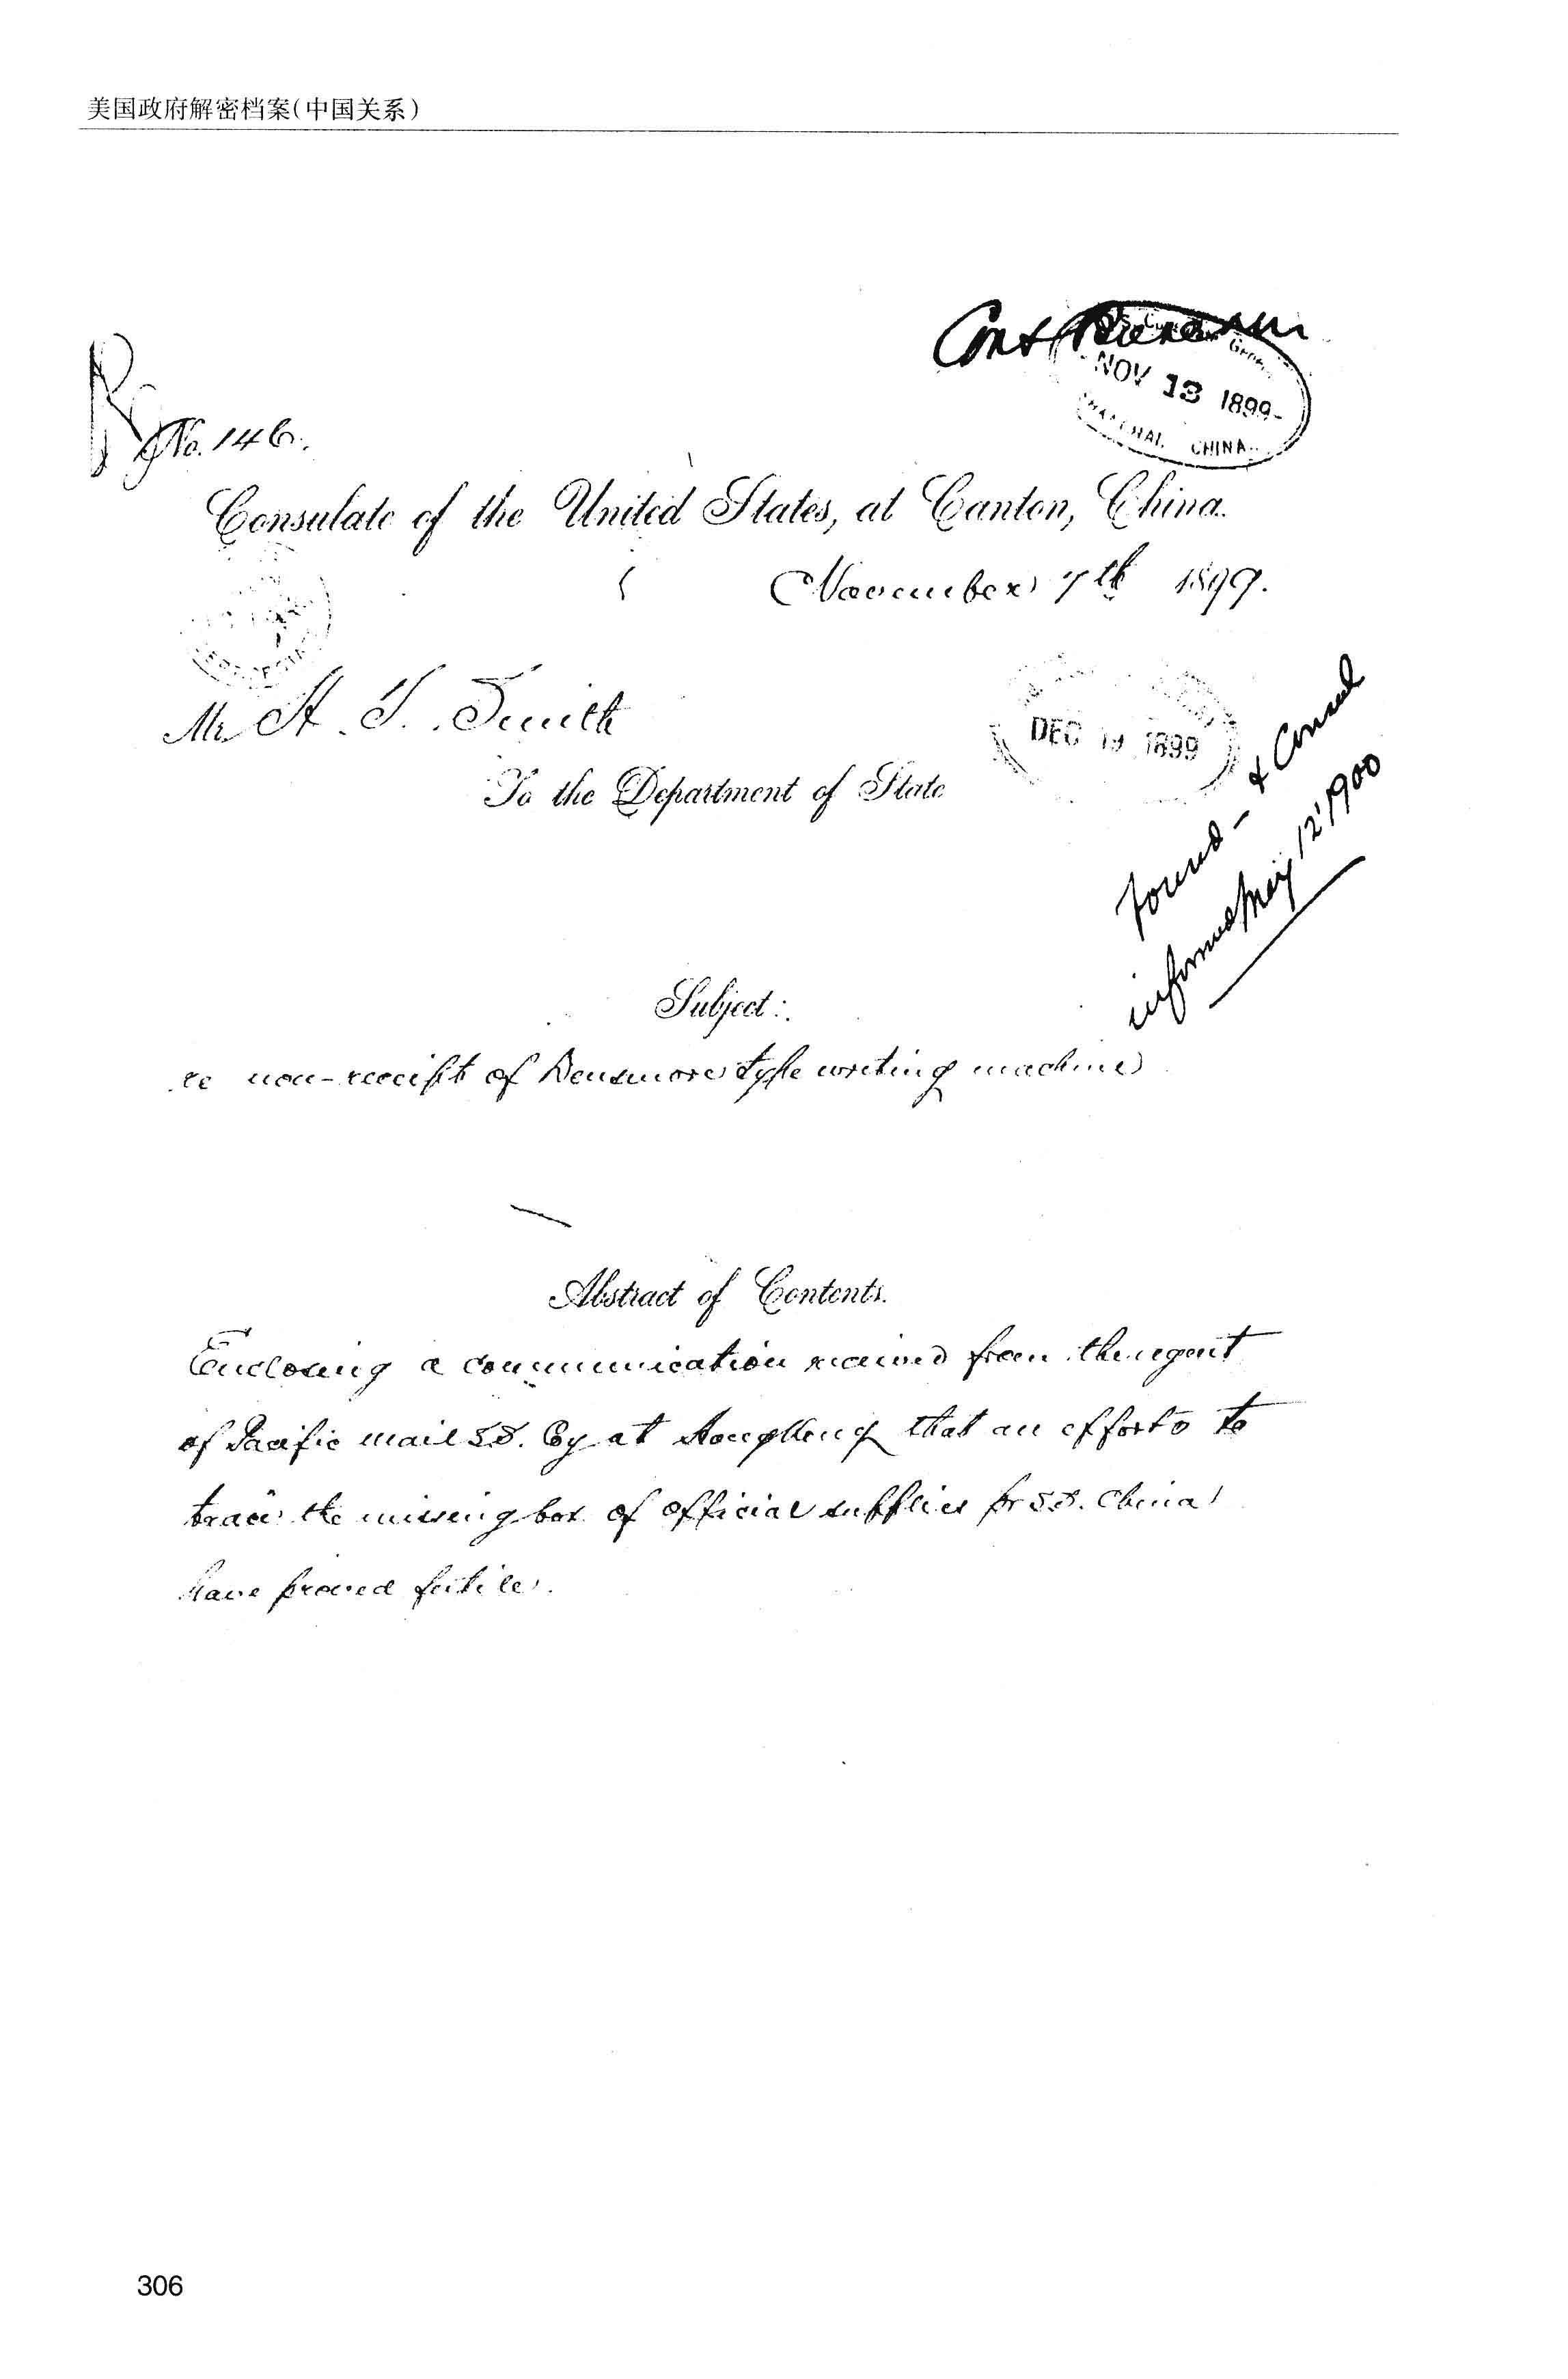 美国政府解密档案(中国关系)
NOV 13 1899
CHINA
No. 146.
Consulate of the United States, at Canton, China.
November 7th 1899.
Mr. H. S. Smith
To the Department of State
DEC 19 1899
Found - & Consul
informed May 12/1900
Subject:
re non-receipt of Densmore type writing machine
Abstract of Contents.
Enclosing a communication received from the agent
of Pacific mail S.S. Coy at HongKong that an efforts to
trace the missing box of official supplies pr S.S. China
have proved futile.
306